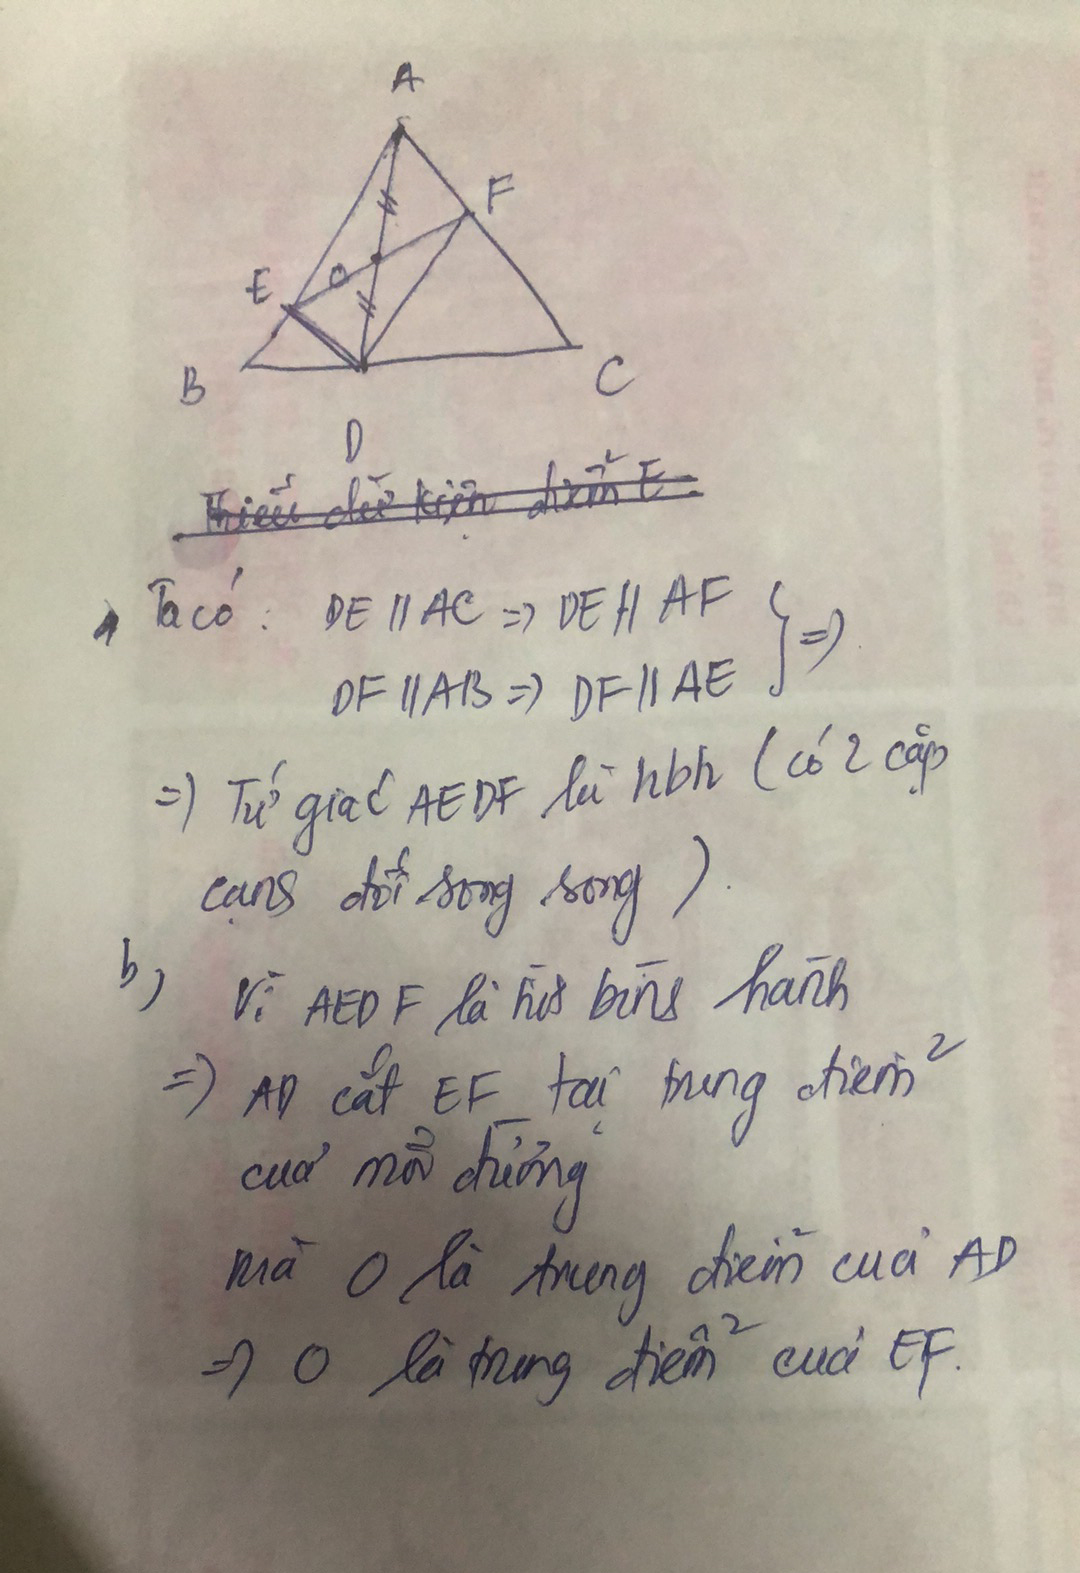 A
F
E
O
B
C
D
Thiếu dữ kiện điểm E.
Ta có: DE // AC => DE // AF
DF // AB => DF // AE } =>
=> Tứ giác AEDF là hbh (có 2 cặp
cạnh đối song song).
b) Vì AEDF là hình bình hành
=> AD cắt EF tại trung điểm
của mỗi đường
mà O là trung điểm của AD
=> O là trung điểm của EF.